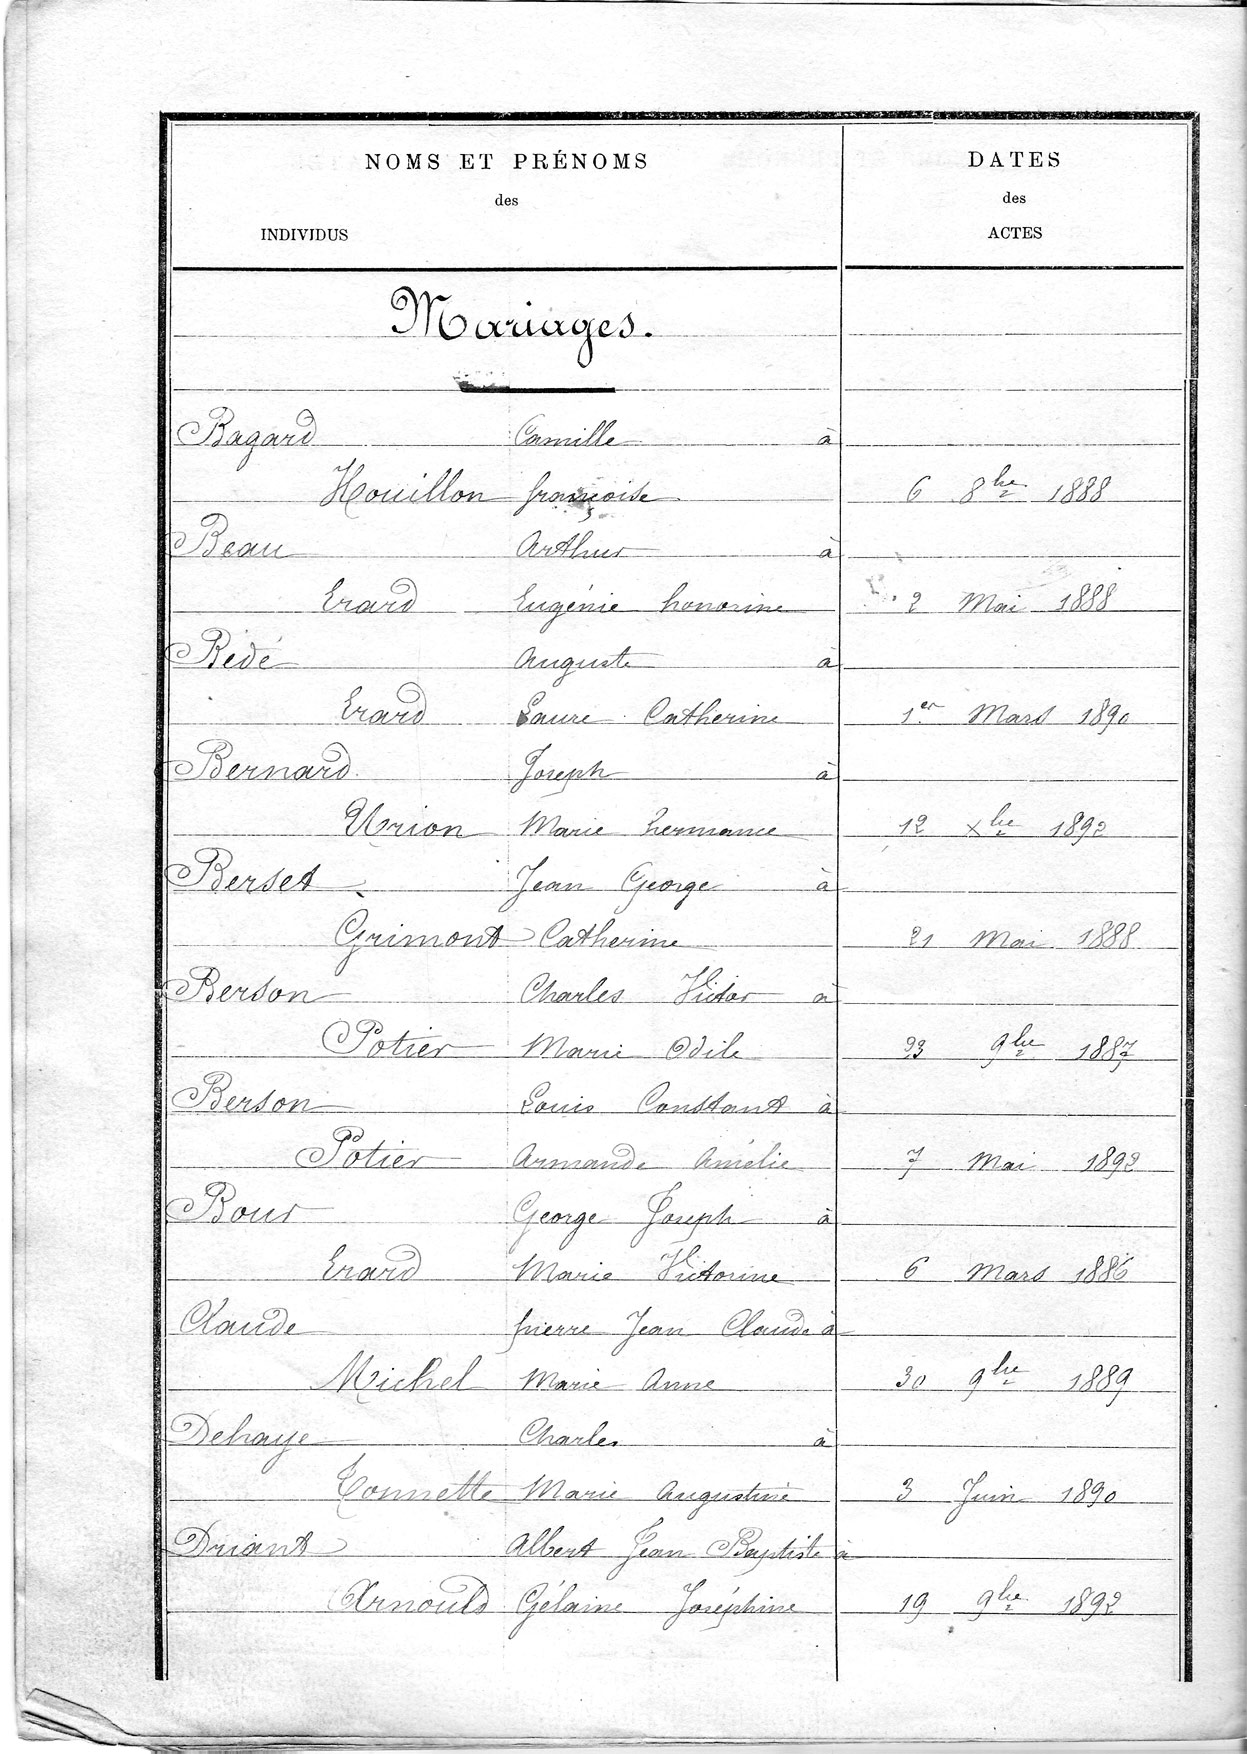 NOMS ET PRÉNOMS
des
INDIVIDUS
DATES
des
ACTES
Mariages.
Bagard Camille à
Houillon françoise 6 8bre 1888
Beau Arthur à
Erard Eugénie honorine 2 Mai 1888
Bédé Auguste à
Erard Laure Catherine 1er Mars 1890
Bernard Joseph à
Urion Marie hermance 12 Xbre 1892
Berset Jean George à
Grimont Catherine 21 Mai 1888
Berson Charles Victor à
Potier Marie Odile 23 9bre 1887
Berson Louis Constant à
Potier Armande Amélie 7 Mai 1892
Bour George Joseph à
Erard Marie Victorine 6 Mars 1886
Claude pierre Jean Claude à
Michel Marie Anne 30 9bre 1889
Dehaye Charles à
Tonnette Marie Augustine 3 Juin 1890
Driant Albert Jean Baptiste à
Arnould Gélaine Joséphine 19 9bre 1892